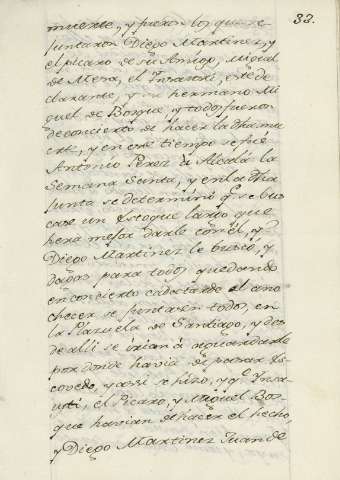 33.
muerte, y fueron los que se
juntaron Diego Martinez, y
el picaro de su Amigo, Miguel
de Mesa, el Insausti, este de
clarante, y su hermano Mi
guel de Bosque, y todos fueron
de concierto de hacer la dha mu
erte, y en ese tiempo se fué
Antonio Perez à Alcalá la
Semana Santa, y en la dha
Junta se determinó q.e se bus
case un Estoque largo que
hera mejor darle con èl, y
Diego Martinez le buscó, y
Dagas para todos quedando
en concierto cada tarde el ano
checer se juntasen todos, en
la Plazuela de Santiago, y des
de alli se irian à aguardarle
por donde havia de pasar Es
covedo, y assi se hizo, y q.e Insa
usti, el Picaro, y Miguel Bos
que havian de hacer el hecho,
y Diego Martinez Juan de